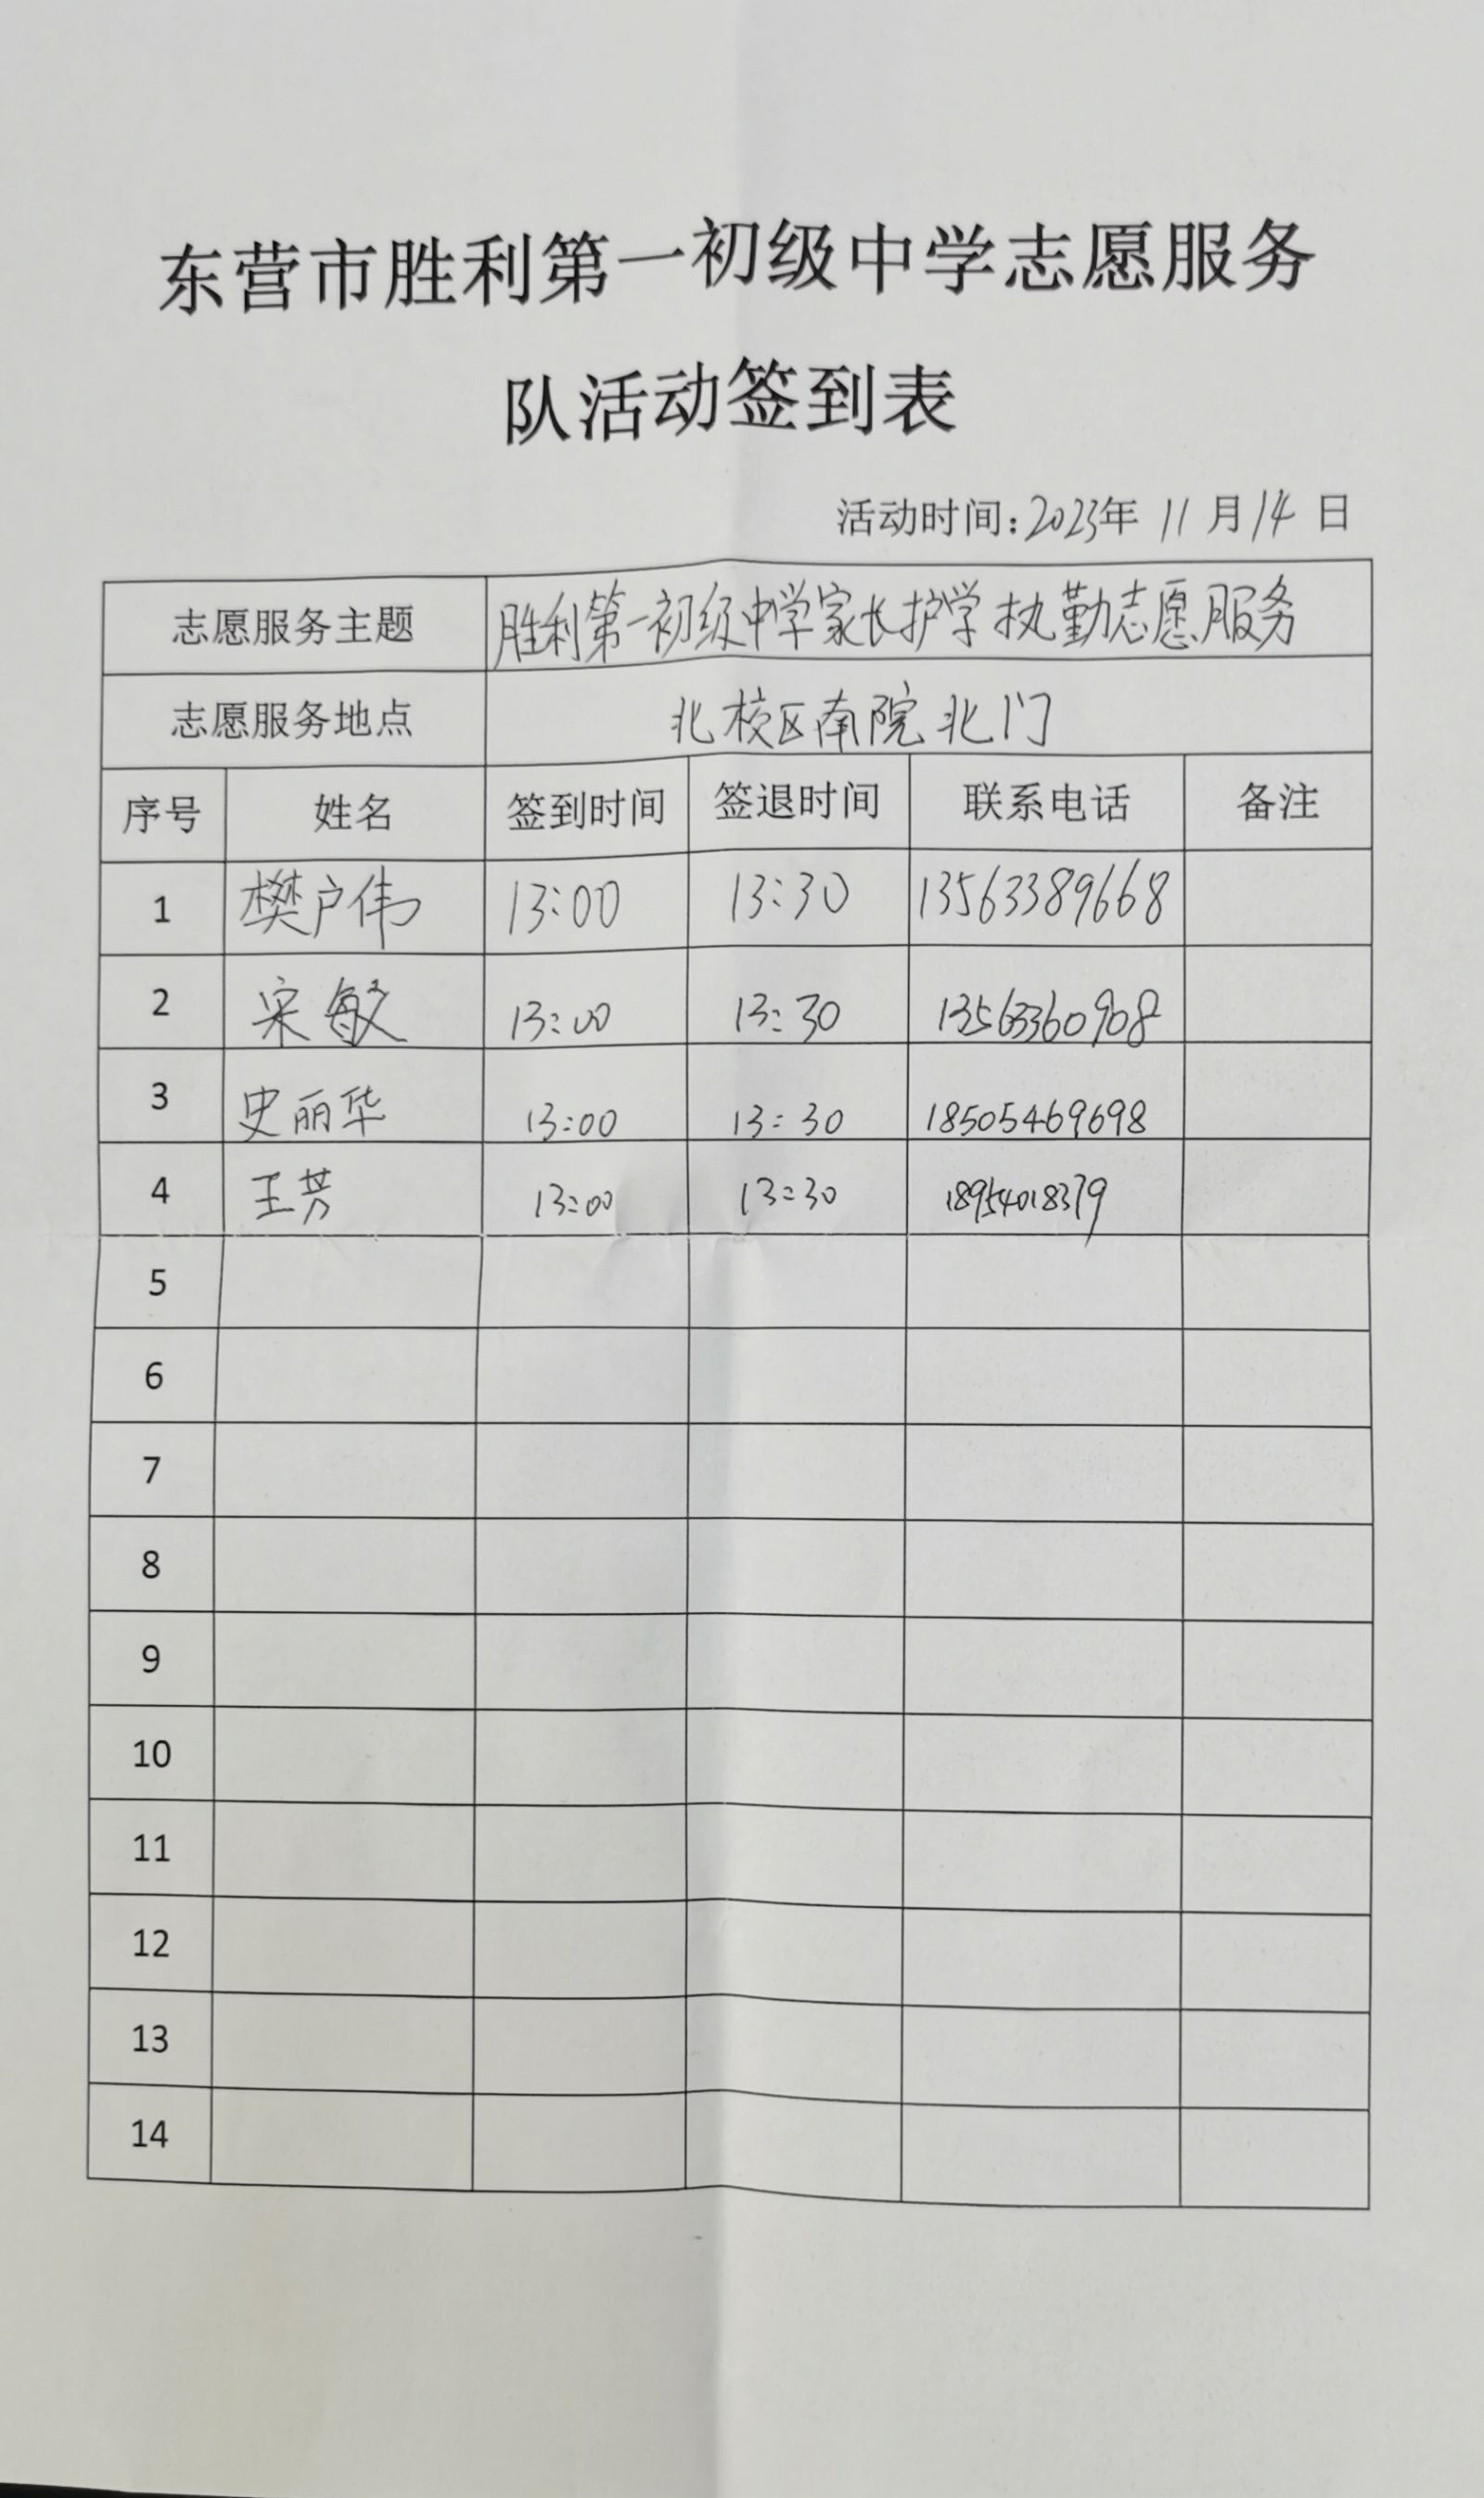 东营市胜利第一初级中学志愿服务
队活动签到表
活动时间：2023年 11 月 14 日
志愿服务主题 胜利第一初级中学家长护学执勤志愿服务
志愿服务地点 北校区南院北门
序号 姓名 签到时间 签退时间 联系电话 备注
1 樊卢伟 13:00 13:30 13563389668
2 宋敏 13:00 13:30 13563360908
3 史丽华 13:00 13:30 18505469698
4 王芳 13:00 13:30 18954018379
5
6
7
8
9
10
11
12
13
14